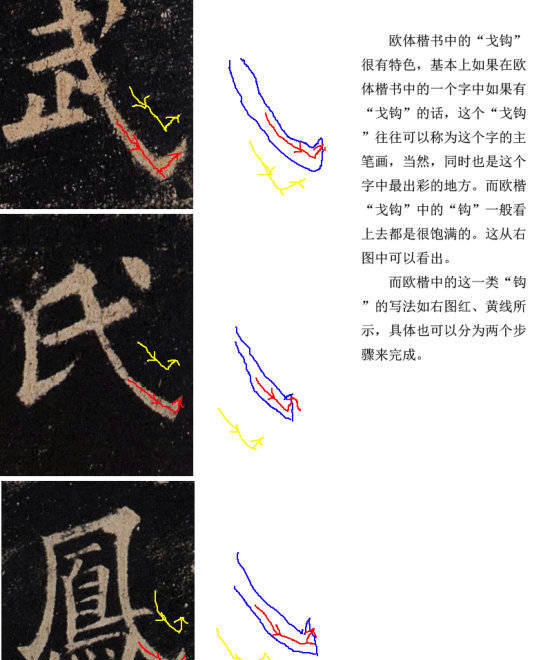 武
氏
鳳
欧体楷书中的“戈钩”
很有特色，基本上如果在欧
体楷书中的一个字中如果有
“戈钩”的话，这个“戈钩
”往往可以称为这个字的主
笔画，当然，同时也是这个
字中最出彩的地方。而欧楷
“戈钩”中的“钩”一般看
上去都是很饱满的。这从右
图中可以看出。
而欧楷中的这一类“钩
”的写法如右图红、黄线所
示，具体也可以分为两个步
骤来完成。